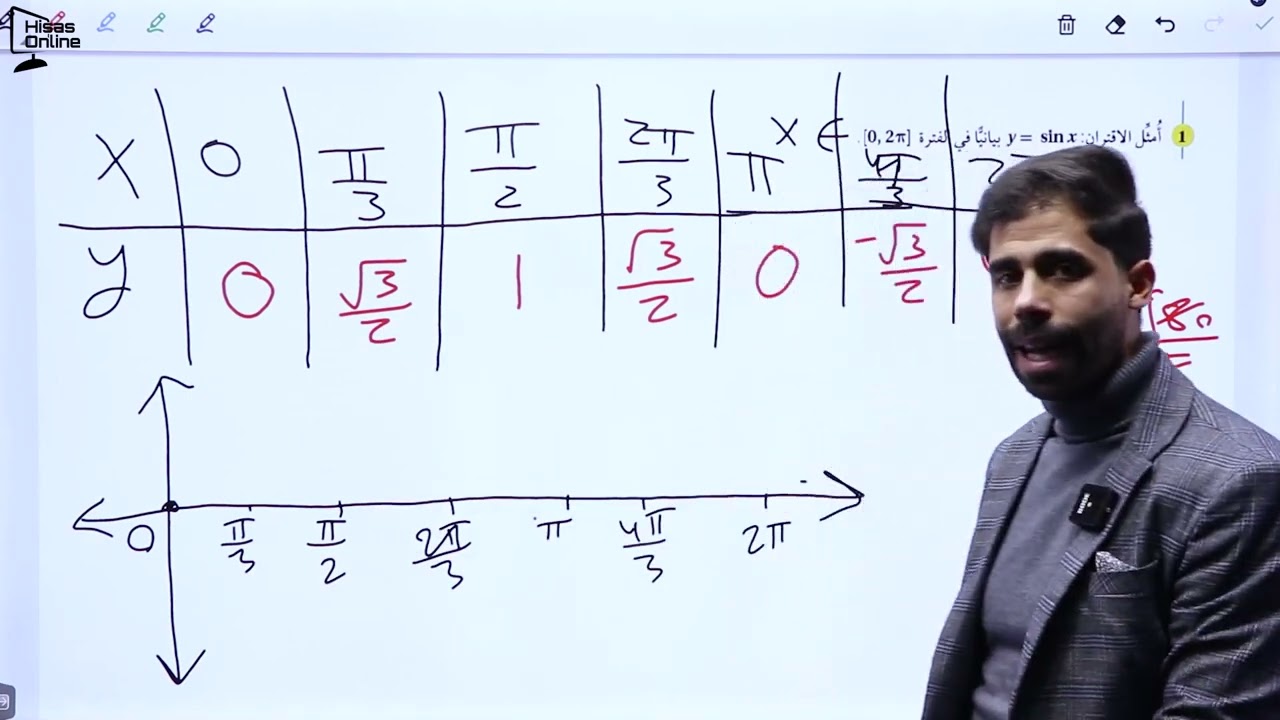 Hisas
Online
1 أُمثِّل الاقتران: y = sin x بيانيًّا في لفترة [0, 2π].
x ∈
X 0 π/3 π/2 2π/3 π 4π/3
y 0 √3/2 1 √3/2 0 -√3/2
0 π/3 π/2 2π/3 π 4π/3 2π